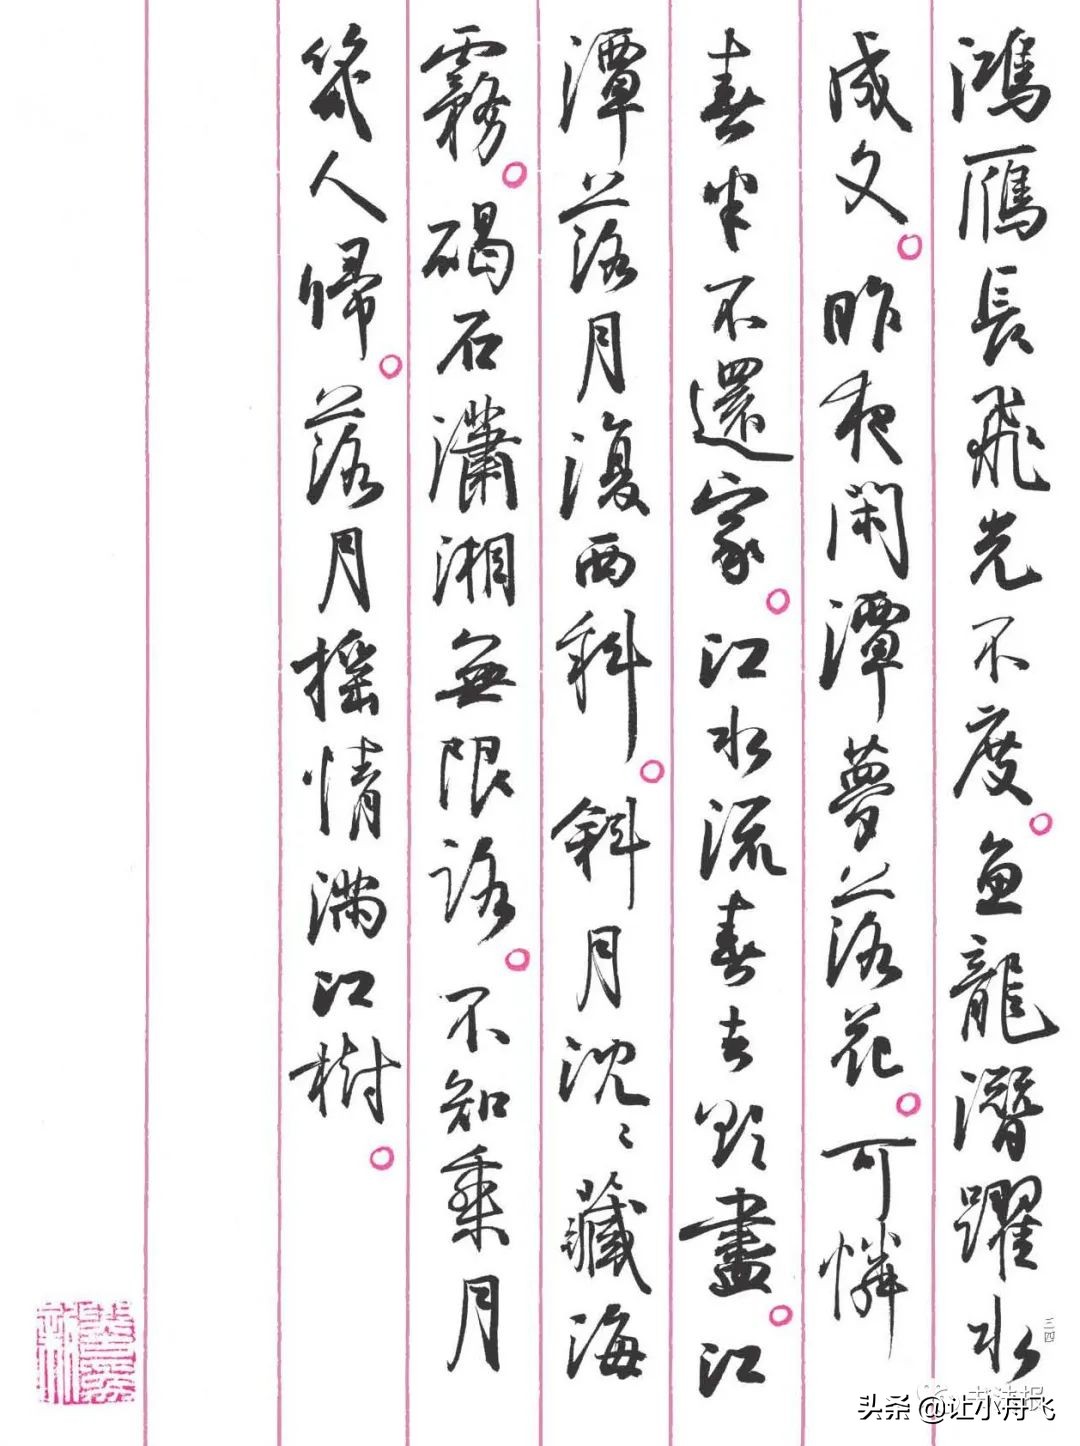 鴻雁長飛光不度。魚龍潛躍水
成文。昨夜閑潭夢落花。可憐
春半不還家。江水流春去欲盡。江
潭落月復西斜。斜月沈〻藏海
霧。碣石瀟湘無限路。不知乘月
幾人歸。落月搖情滿江樹。
三四
书法报
头条 @让小舟飞